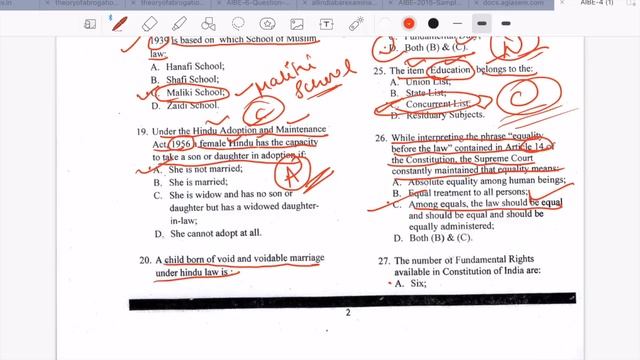 theoryofabrogatio...
AIBE-6-Question-
allindiabarexamina...
AIBE-2016-Sampl...
docs.aglasem.com
AIBE-4 (1)
1939 is based on which School of Muslim
law:
A. Hanafi School;
B. Shafi School;
C. Maliki School;
D. Zaidi School.
Maliki
School
C
19. Under the Hindu Adoption and Maintenance
Act, 1956 a female Hindu has the capacity
to take a son or daughter in adoption if:
A. She is not married;
B. She is married;
C. She is widow and has no son or
daughter but has a widowed daughter-
in-law;
D. She cannot adopt at all.
A
20. A child born of void and voidable marriage
under hindu law is :
D. Both (B) & (C).
D
25. The item Education belongs to the:
A. Union List;
B. State List;
C. Concurrent List;
D. Residuary Subjects.
C
26. While interpreting the phrase "equality
before the law" contained in Article 14 of
the Constitution, the Supreme Court
constantly maintained that equality means:
A. Absolute equality among human beings;
B. Equal treatment to all persons;
C. Among equals, the law should be equal
and should be equal and should be
equally administered;
D. Both (B) & (C).
27. The number of Fundamental Rights
available in Constitution of India are:
A. Six;
2